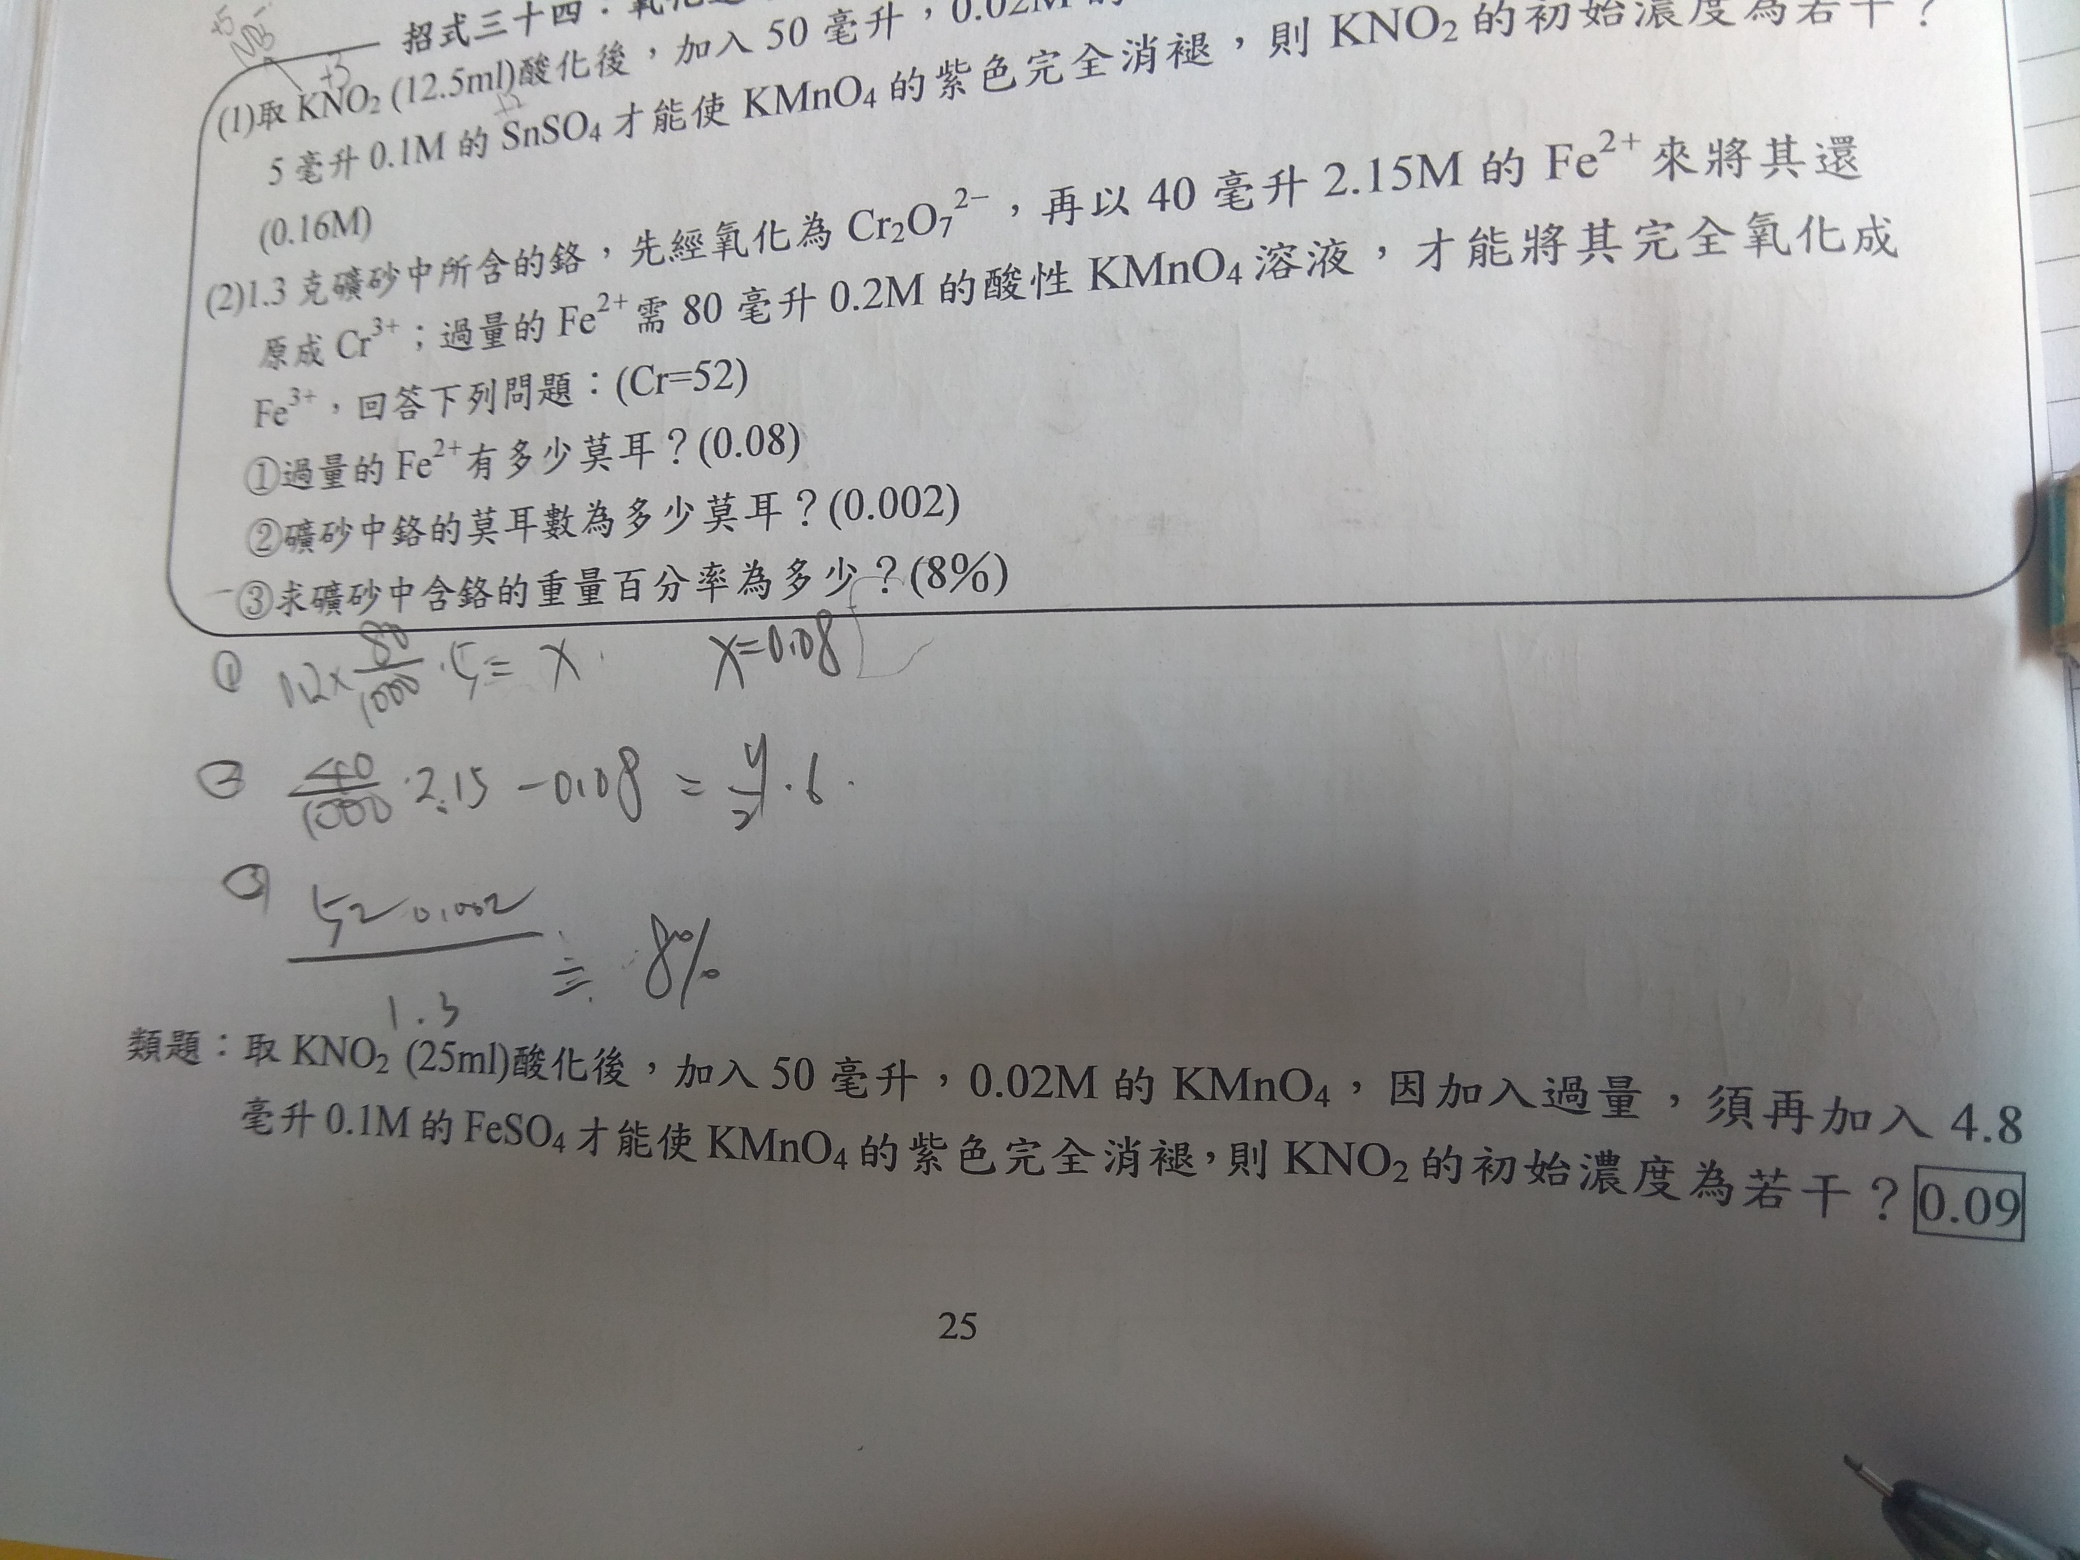 招式三十四：氧化還
(1)取 KNO₂ (12.5ml)酸化後，加入 50 毫升，0.02M 的
5 毫升 0.1M 的 SnSO₄ 才能使 KMnO₄ 的紫色完全消褪，則 KNO₂ 的初始濃度為若干？
(0.16M)
(2)1.3 克礦砂中所含的鉻，先經氧化為 Cr₂O₇²⁻，再以 40 毫升 2.15M 的 Fe²⁺ 來將其還
原成 Cr³⁺；過量的 Fe²⁺ 需 80 毫升 0.2M 的酸性 KMnO₄ 溶液，才能將其完全氧化成
Fe³⁺，回答下列問題：(Cr=52)
①過量的 Fe²⁺有多少莫耳？(0.08)
②礦砂中鉻的莫耳數為多少莫耳？(0.002)
③求礦砂中含鉻的重量百分率為多少？(8%)
① 0.2× 80/1000 ·5 = x x=0.08
② 40/1000 ·2.15 -0.08 = y/2 ·6
③ 52 0.002 / 1.3 = 8%
類題：取 KNO₂ (25ml)酸化後，加入 50 毫升，0.02M 的 KMnO₄，因加入過量，須再加入 4.8
毫升 0.1M 的 FeSO₄ 才能使 KMnO₄ 的紫色完全消褪，則 KNO₂ 的初始濃度為若干？0.09
25